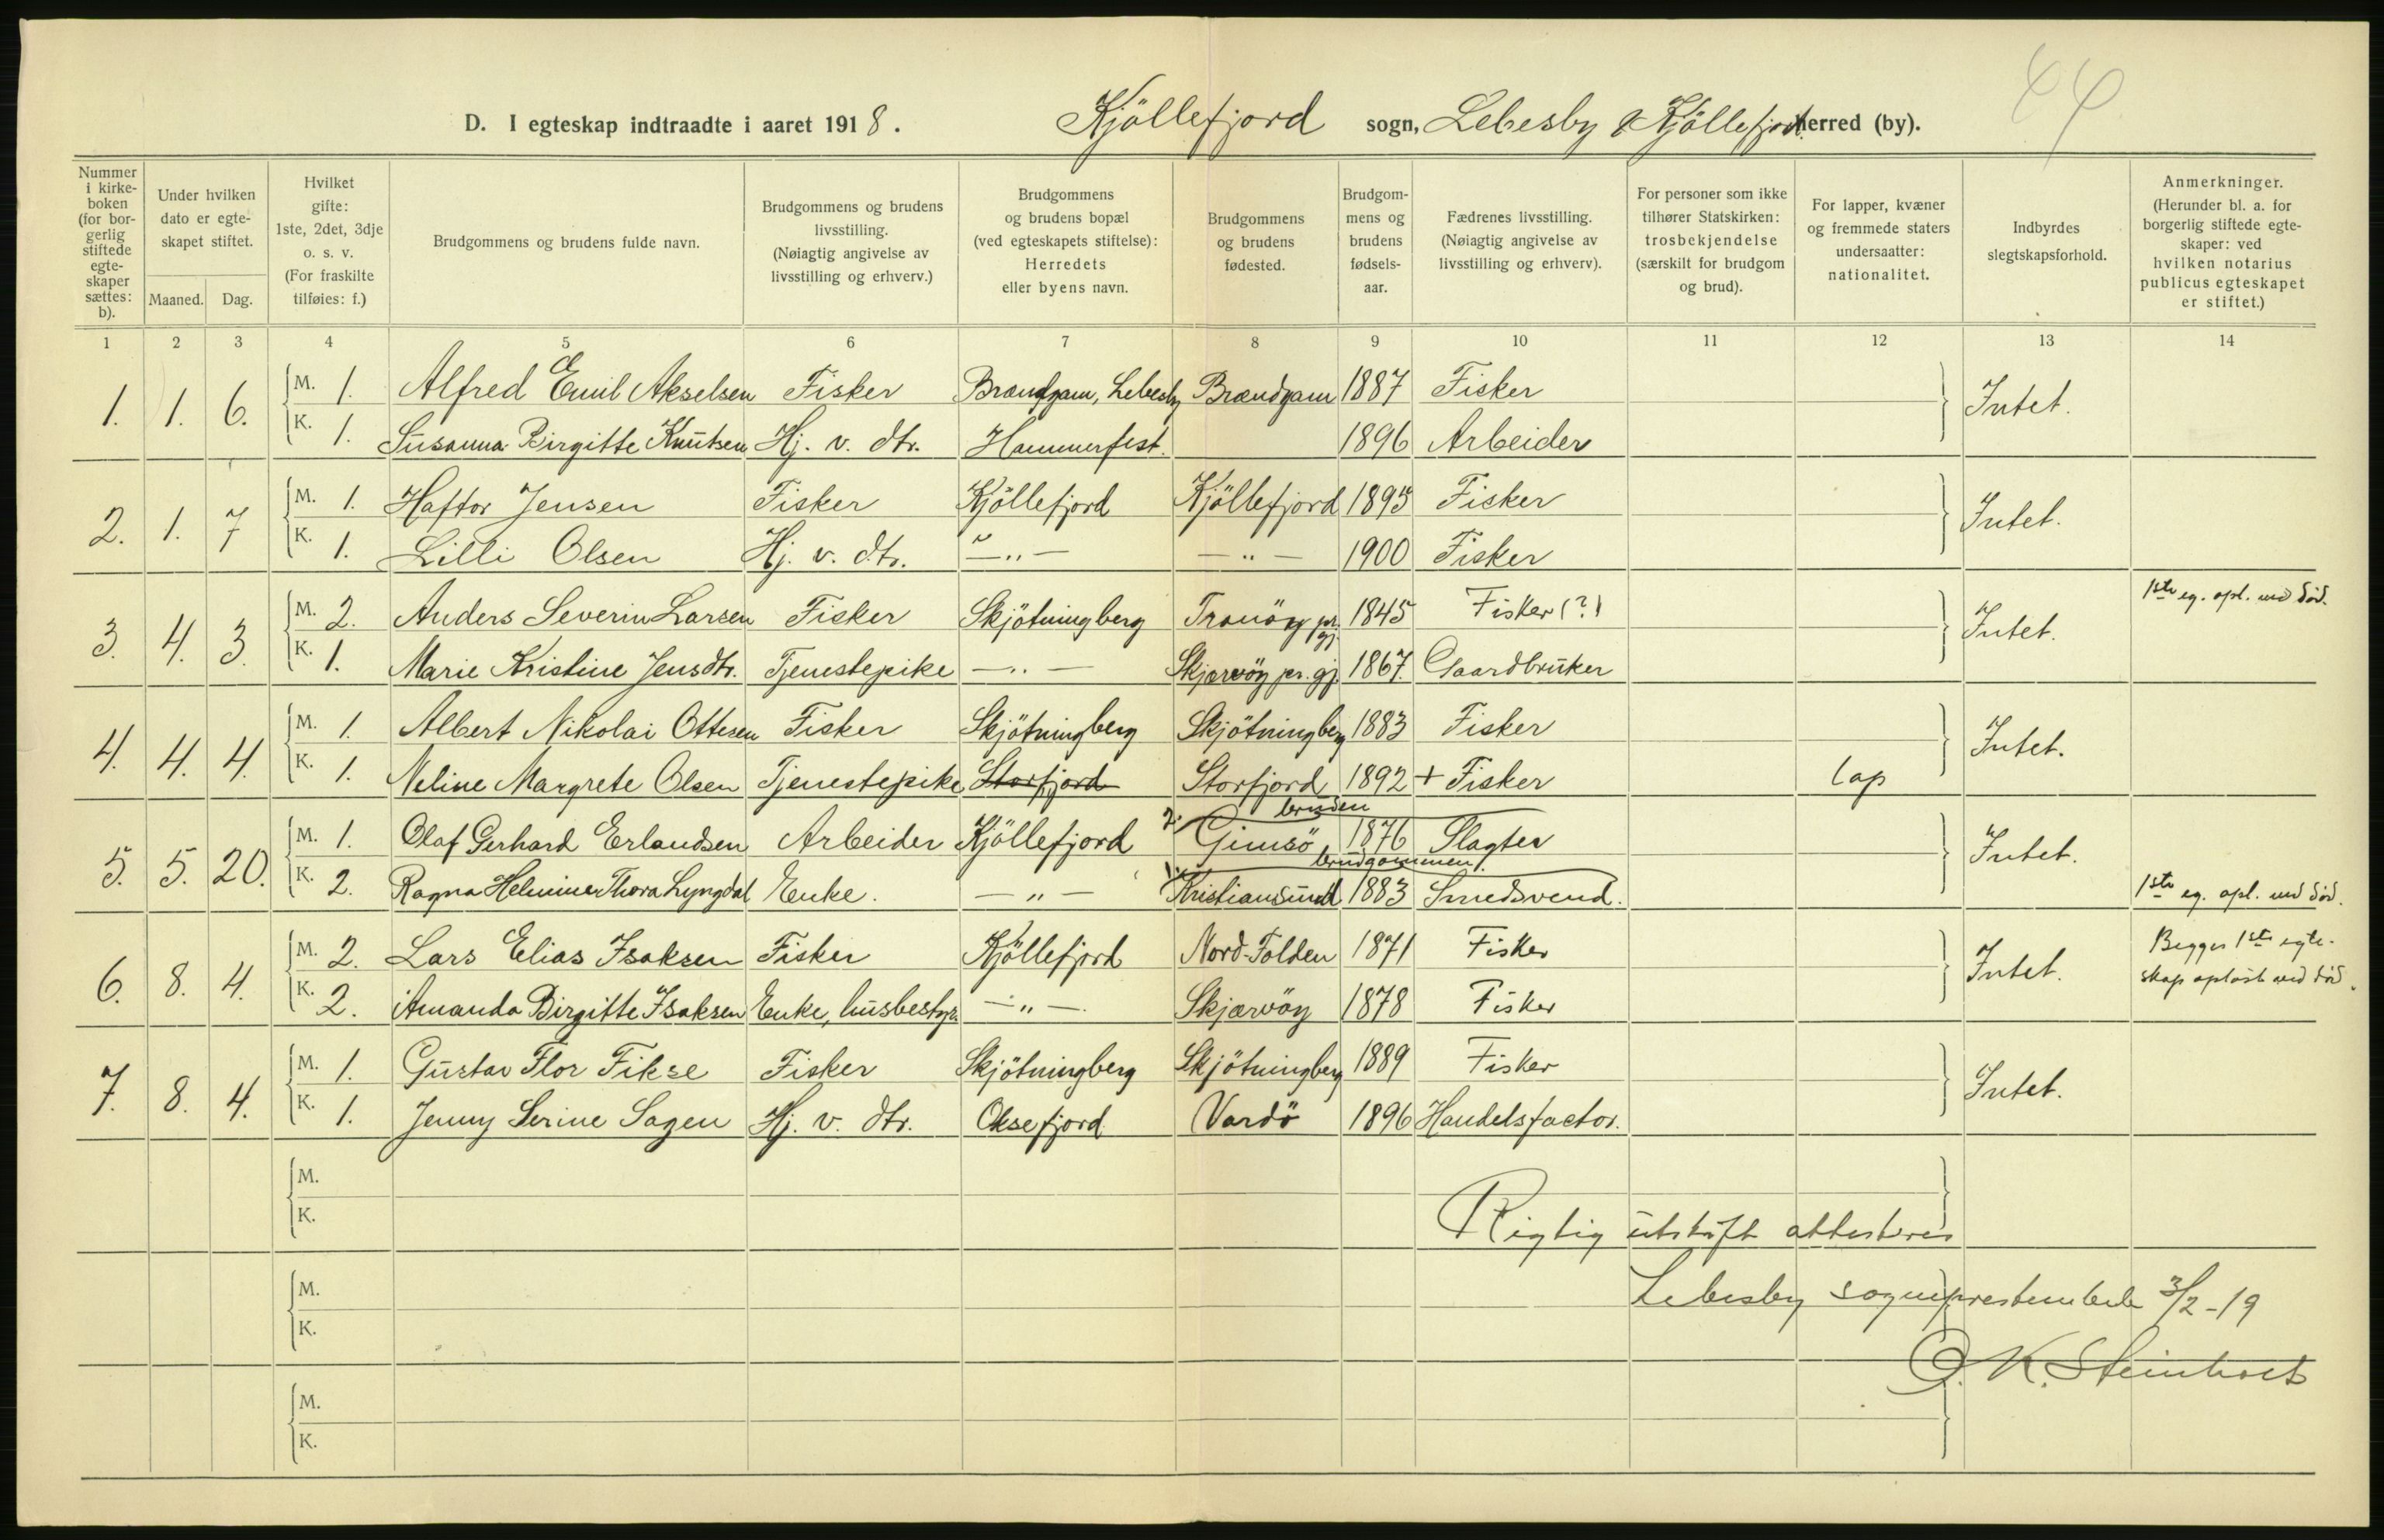 44
D. I egteskap indtraadte i aaret 1918. Kjöllefjord sogn, Lebesby & Kjöllefjord herred (by).
Nummer i kirke-boken (for bor-gerlig stiftede egte-skaper sættes: b).
Under hvilken dato er egte-skapet stiftet.
Maaned. Dag.
Hvilket gifte: 1ste, 2det, 3dje o. s. v. (For fraskilte tilføies: f.)
Brudgommens og brudens fulde navn.
Brudgommens og brudens livsstilling. (Nøiagtig angivelse av livsstilling og erhverv.)
Brudgommens og brudens bopæl (ved egteskapets stiftelse): Herredets eller byens navn.
Brudgommens og brudens fødested.
Brudgom-mens og brudens fødsels-aar.
Fædrenes livsstilling. (Nøiagtig angivelse av livsstilling og erhverv).
For personer som ikke tilhører Statskirken: trosbekjendelse (særskilt for brudgom og brud).
For lapper, kvæner og fremmede staters undersaatter: nationalitet.
Indbyrdes slegtskapsforhold.
Anmerkninger. (Herunder bl. a. for borgerlig stiftede egte-skaper: ved hvilken notarius publicus egteskapet er stiftet.)
1 2 3 4 5 6 7 8 9 10 11 12 13 14
1. 1. 6. M. 1. Alfred Emil Akselsen Fisker Brændgam, Lebesby Brændgam 1887 Fisker Intet.
K. 1. Susanna Birgitte Knutsen Hj. v. dtr. Hammerfest. 1896 Arbeider
2. 1. 7 M. 1. Haftor Jensen Fisker Kjöllefjord Kjöllefjord 1895 Fisker Intet.
K. 1. Lilli Olsen Hj. v. dtr. — „ — — „ — 1900 Fisker
3. 4. 3. M. 2. Anders Severin Larsen Fisker Skjötningberg Tranöy pr. gj. 1845 Fisker (?) Intet. 1ste eg. opl. ved död.
K. 1. Marie Kristine Jensdtr. Tjenestepike — „ — Skjærvöy pr. gj. 1867. Gaardbruker
4. 4. 4. M. 1. Albert Nikolai Ottesen Fisker Skjötningberg Skjötningberg 1883 Fisker Intet.
K. 1. Neline Margrete Olsen Tjenestepike Storfjord Storfjord 1892 + Fisker lap
5. 5. 20. M. 1. Olaf Gerhard Erlandsen Arbeider Kjöllefjord 2. Gimsö bruden 1876 Slagter Intet.
K. 2. Ragna Helmine Thora Lyngdal Enke. — „ — 1. Kristiansund brudgommen 1883 Smedsvend. 1ste eg. opl. ved död.
6. 8. 4. M. 2. Lars Elias Isaksen Fisker Kjöllefjord Nord-Folden 1871 Fisker Intet. Begges 1ste egte-
K. 2. Amanda Birgitte Isaksen Enke, husbestyr. — „ — Skjærvöy 1878 Fisker skap oplöst ved död.
7. 8. 4. M. 1. Gustav Flor Fikse Fisker Skjötningberg Skjötningberg 1889 Fisker Intet.
K. 1. Jenny Serine Sagen Hj. v. dtr. Oksefjord Vardö 1896 Handelsfactor.
M.
K.
Rigtig utskrift attesteres
M.
K.
Lebesby sogneprestembede 3/2-19
O. K. Steinholt
M.
K.